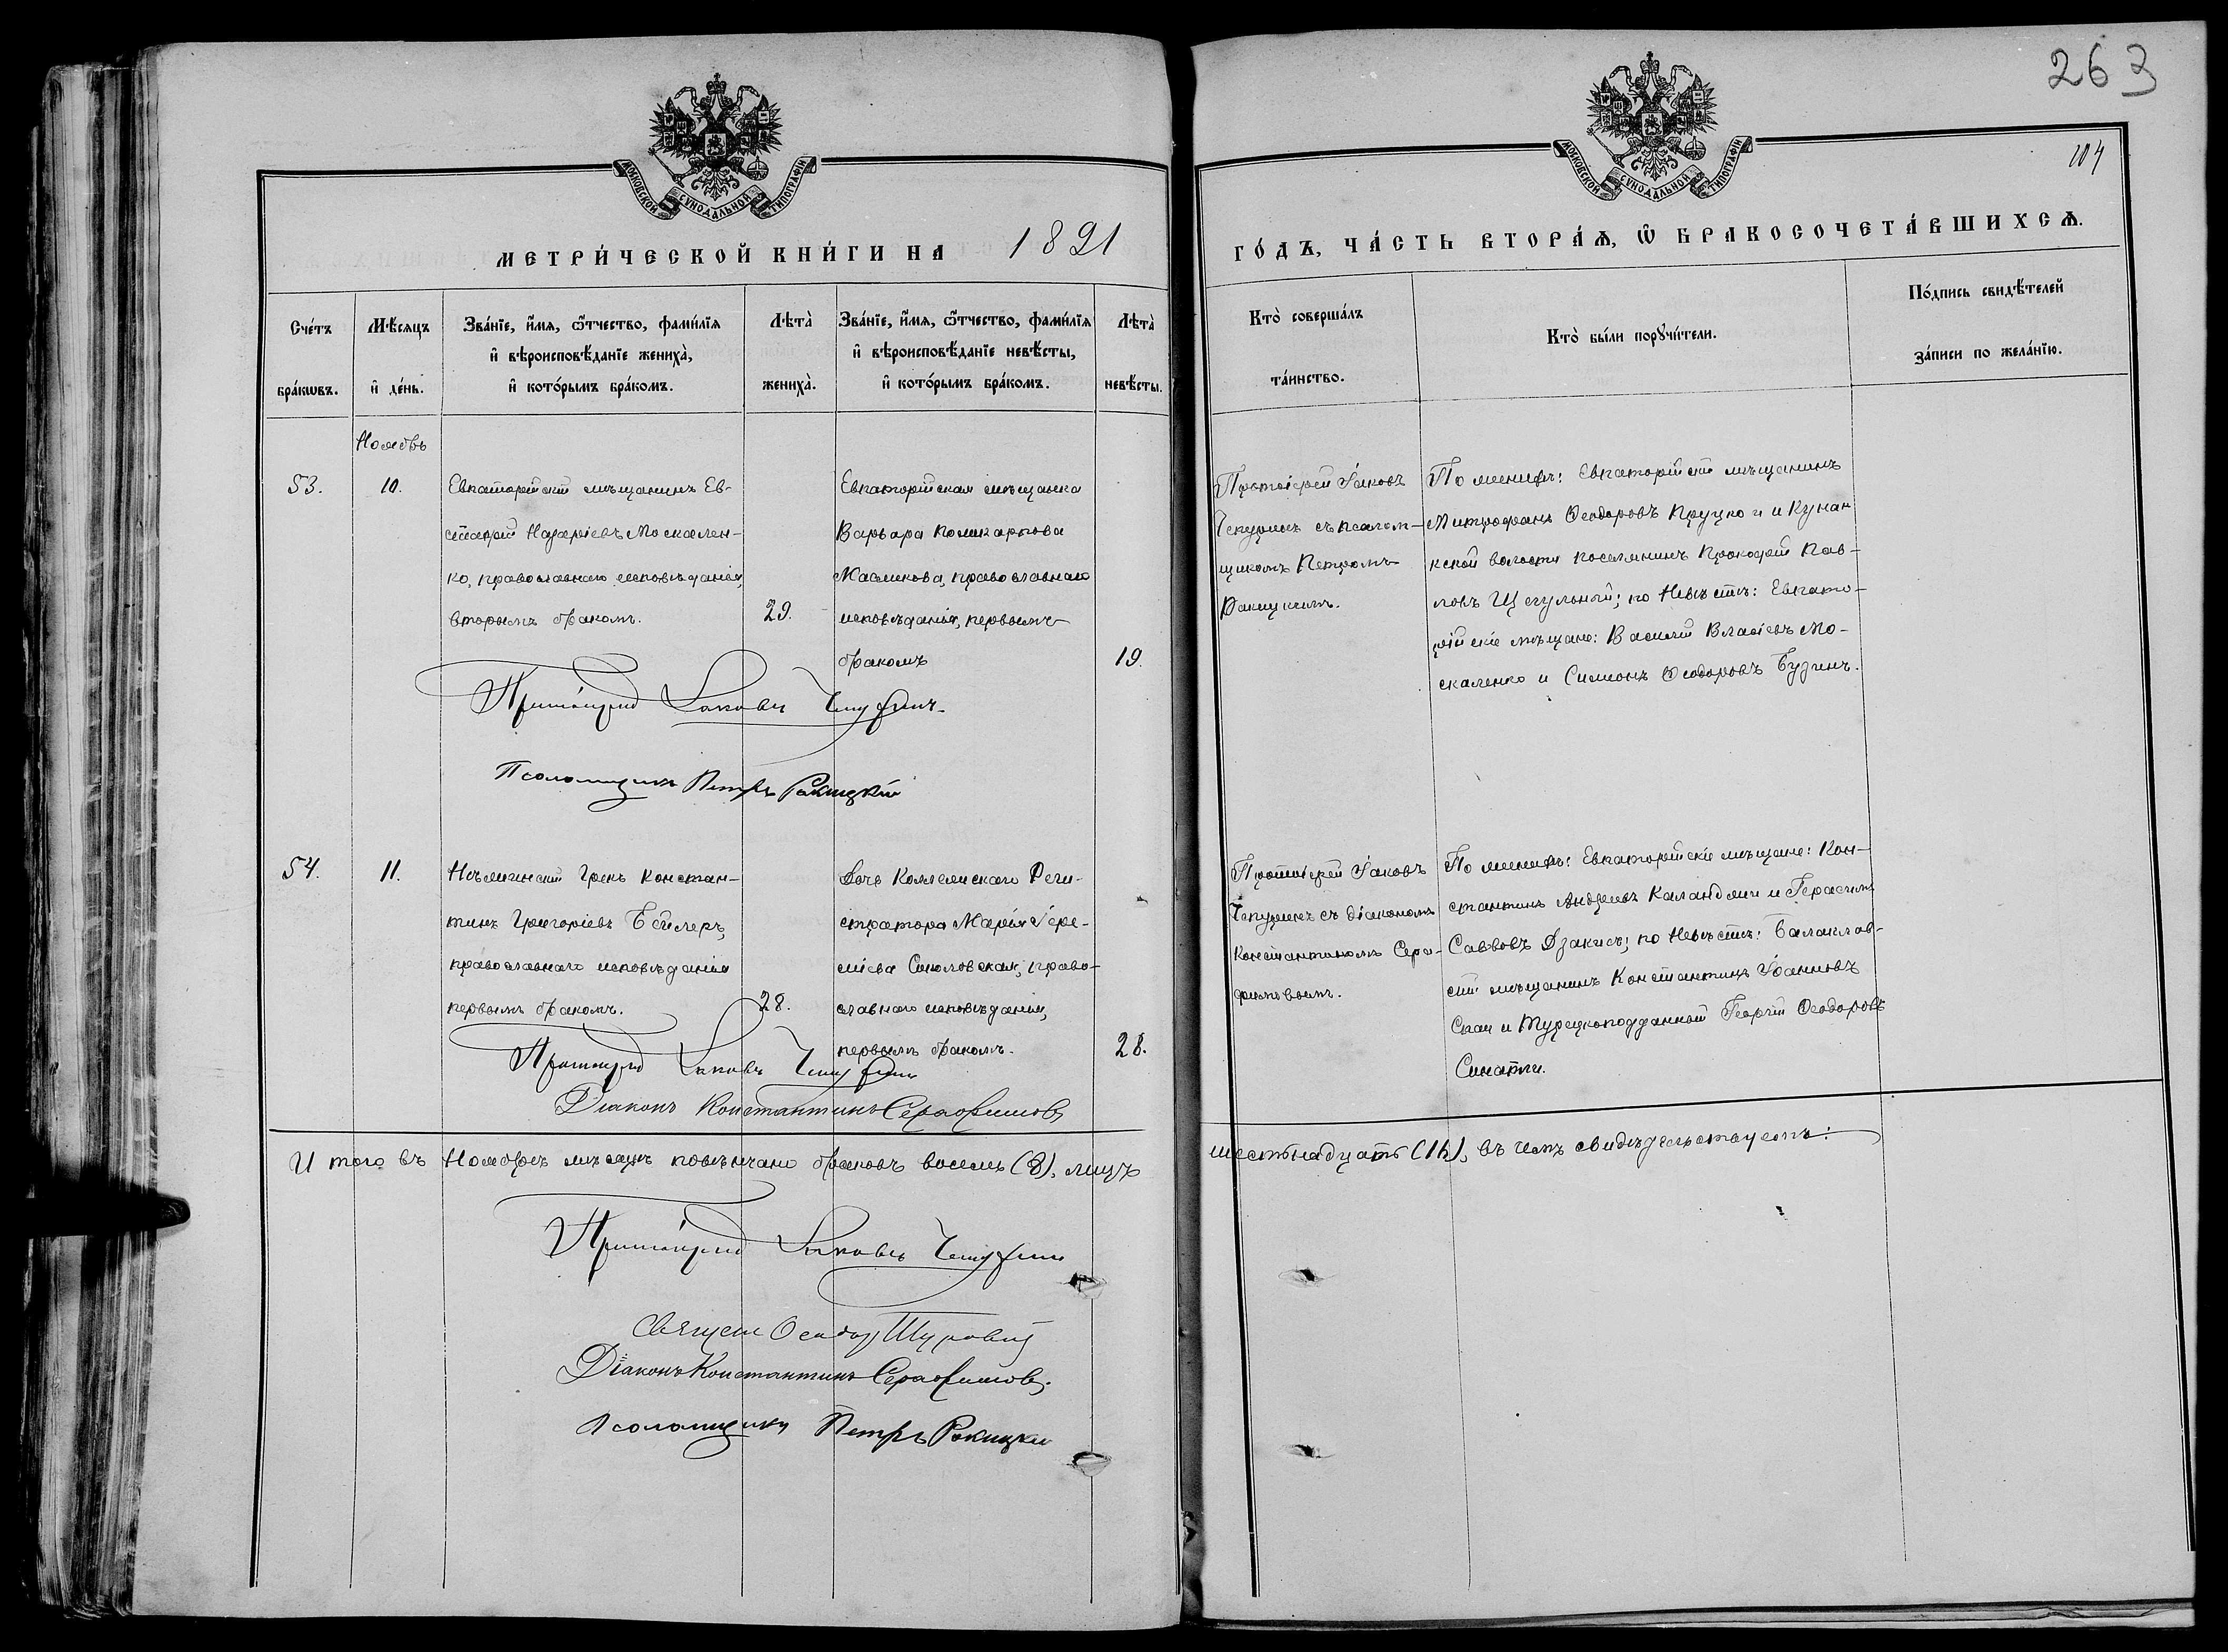 263
104
МОСКОВСКОЙ СѴНОДАЛЬНОЙ ТИПОГРАФІИ
МОСКОВСКОЙ СѴНОДАЛЬНОЙ ТИПОГРАФІИ
МЕТРИ́ЧЕСКОЙ КНИ́ГИ НА 1891
ГО́ДЪ, ЧА́СТЬ ВТОРА́Ѧ, Ѡ БРАКОСОЧЕТА́ВШИХСѦ.
Сче́тъ
бра́кѡвъ.
Мѣ́сяцъ
и҆ де́нь.
Зва́нїе, и҆́мя, ѻ҆́тчество, фами́лїя
и҆ вѣроисповѣ́данїе жениха̀,
и҆ кото́рымъ бра́комъ.
Лѣта̀
жениха̀.
Зва́нїе, и҆́мя, ѻ҆́тчество, фами́лїя
и҆ вѣроисповѣ́данїе невѣ́сты,
и҆ кото́рымъ бра́комъ.
Лѣта̀
невѣ́сты.
Кто̀ соверша́лъ
та́инство.
Кто̀ бы́ли порꙋчи́тели.
По́дпись свидѣ́телей
за́писи по жела́нїю.
Ноябрь
53.
10.
Евпаторійскій мѣщанинъ Ев-
стафій Назаріевъ Москален-
ко, православнаго исповѣданія,
вторымъ бракомъ.
29.
Евпаторійская мѣщанка
Варвара Поликарпова
Масликова, православнаго
исповѣданія, первымъ
бракомъ
19.
Протоіерей Іаковъ
Чепуринъ съ псалом-
щикомъ Петромъ
Ракицкимъ.
По женихѣ: Евпаторійскій мѣщанинъ
Митрофанъ Ѳеодоровъ и Кунан
кской волости поселянинъ Прокофій Пав-
ловъ Щегульный; по Невѣстѣ: Евпато-
рійскіе мѣщане: Василій Власіевъ Мо-
скаленко и Симеонъ Ѳеодоровъ Будинъ.
Протоіерей Іаковъ Чепуринъ
Псаломщикъ Петръ Ракицкій
54.
11.
Нѣжинскій Грекъ Констан-
тинъ Григоріевъ
православнаго исповѣданія
первымъ бракомъ.
28.
Дочь Коллежскаго Реги-
стратора Марія Іере-
міева Соколовская, право-
славнаго исповѣданія,
первымъ бракомъ.
28.
Протоіерей Іаковъ
Чепуринъ съ діакономъ
Константиномъ Сера-
фимовымъ.
По женихѣ: Евпаторійскіе мѣщане: Кон-
стантинъ Андреевъ Каланджи и Герасимъ
Саввовъ Дзакисъ; по Невѣстѣ: Балаклав-
скій мѣщанинъ Константинъ Іоанновъ
и Турецкоподданный Георгій Ѳеодоровъ
Синапли.
Протоіерей Іаковъ Чепуринъ
Діаконъ Константинъ Серафимовъ
И того въ Ноябрѣ мѣсяцѣ повѣнчано браковъ восемь (8), лицъ
шестьнадцать (16), въ чемъ свидѣтельствуемъ:
Протоіерей Іаковъ Чепуринъ
Священ Ѳеодор
Діаконъ Константинъ Серафимовъ.
Псаломщикъ Петръ Ракицкій